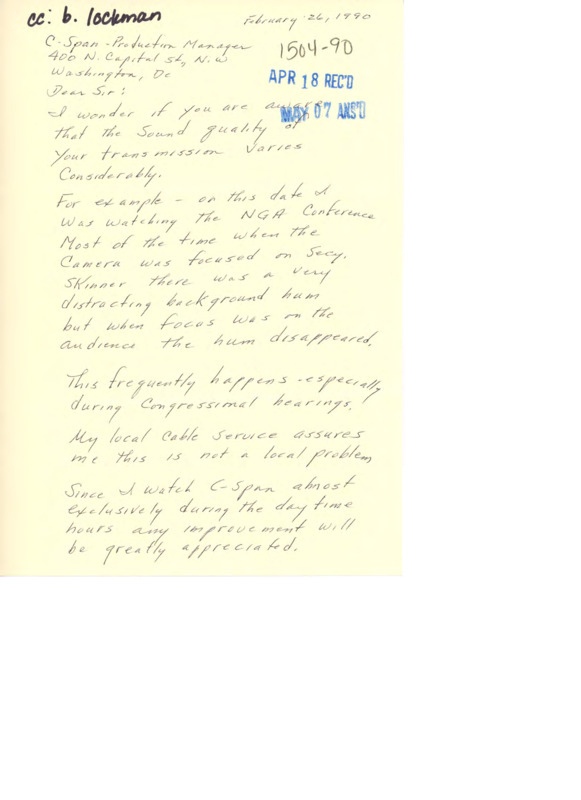 cc: b. lockman
February 26, 1990
C-Span - Production Manager
1504-90
400 N. Capital St, N.W
Washington, Dc
APR 18 REC'D
Dear Sir:
MAY 07 ANS'D
I wonder if you are aware
that the Sound quality of
Your transmission varies
Considerably.
For example - on this date I
was watching the NGA Conference
Most of the time when the
Camera was focused on Secy.
Skinner there was a very
distracting background hum
but when focus was on the
audience the hum disappeared.
This frequently happens - especially
during Congressional hearings.
My local Cable Service assures
me this is not a local problem
Since I watch C-Span almost
exclusively during the day time
hours any improvement will
be greatly appreciated.